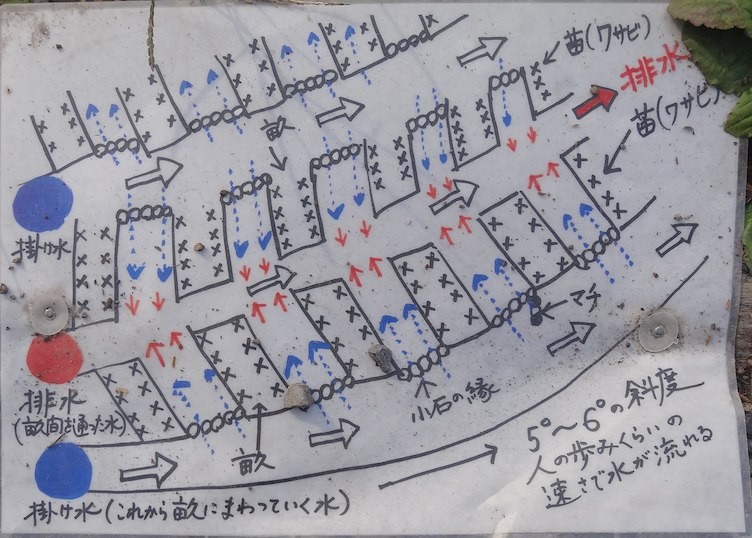 苗(ワサビ)
排水
畝
苗(ワサビ)
掛け水
マチ
排水
(畝間を通った水)
小石の縁
畝
5°〜6°の斜度
人の歩みくらいの
速さで水が流れる
掛け水(これから畝にまわっていく水)